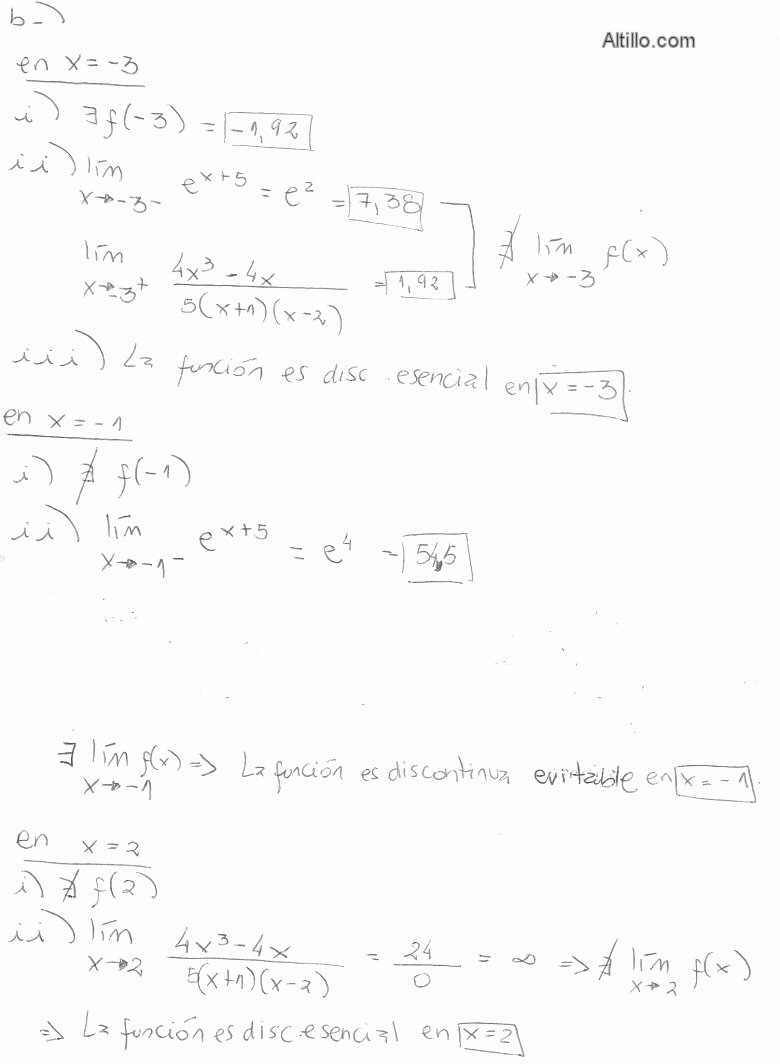 b-)
Altillo.com
en x = -3
i) ∃ f(-3) = -1,92
ii) lím x→-3⁻ e^(x+5) = e² = 7,38
∄ lím x→-3 f(x)
lím x→-3⁺ (4x³ - 4x)/(5(x+1)(x-2)) = 1,92
iii) La función es disc. esencial en x = -3.
en x = -1
i) ∄ f(-1)
ii) lím x→-1⁻ e^(x+5) = e⁴ = 54,5
∃ lím x→-1 f(x) => La función es discontinua evitable en x = -1.
en x = 2
i) ∄ f(2)
ii) lím x→2 (4x³ - 4x)/(5(x+1)(x-2)) = 24/0 = ∞ => ∄ lím x→2 f(x)
=> La función es disc. esencial en x = 2